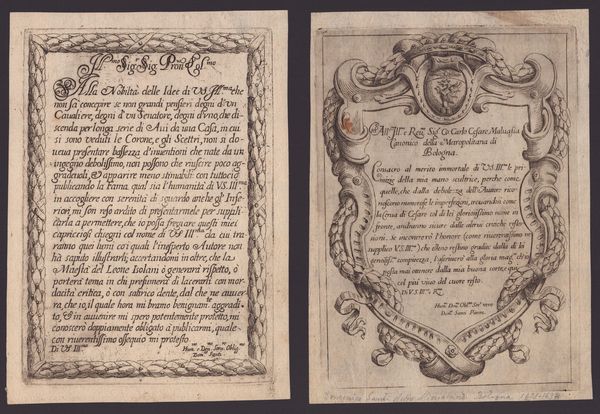 Ill.mo Sig.r Sig. Pron. Col.mo
Alla Nobiltà delle Idee di VS. Ill.ma che
non sà concepire se non grandi pensieri degni d'vn
Caualiere, degni d'vn Senatore, degni d'vno, che di-
scenda per longa serie di Aui da vna Casa, in cui
si sono veduti le Corone, e gli Scettri, non si do-
ueua presentare bassezza d'inuentioni che nate da vn
ingegno debolissimo, non possono che riuscire poco ag-
gradeuoli, & apparire meno stimabili: con tuttociò
publicando la Fama, qual sia l'humanità di V.S. Ill.ma
in accogliere con serenità di sguardo anche gl'Infe-
riori, mi son reso ardito di presentarmele per suppli-
carla a permettere, che io possa fregiare questi miei
capricciosi disegni col nome di VS. Ill.ma da cui tra-
ranno quei lumi co i quali l'inesperto Autore non
hà saputo illustrarli, accertandomi in oltre, che la
Maestà del Leone Isolani ò genererà rispetto, ò
porterà tema in chi presumerà di lacerarli con mor-
dacità critica, ò con satirico dente, dal che ne auuer-
rà, che io, il quale hora mi bramo benignam.te aggradi-
to, & in auuenire mi spero potentemente protetto, mi
conoscerò doppiamente obligato a publicarmi, quale
con riuerentissimo ossequio mi protesto
Di VS. Ill.ma
Hum. e Deu. Seru. Oblig.mo
Dom.co Santi
All' Ill. e Reu. Sig. Co: Carlo Cesare Maluagia
Canonico della Metropolitana di
Bologna.
Consacro al merito immortale di V.S. Ill.ma le pri-
mizie della mia mano scultrice, perche come
quelle, che dalla debolezza dell'Autore rico-
noscono numerose le imperfezioni, recandosi come
la Cerua di Cesare col di lei gloriosissimo nome in
fronte, andranno sicure dalle altrui critiche rifles-
sioni. Se incontrerò l'honore (come riuerentissimo ne
supplico V.S. Ill.ma) che elleno restino gradite dalla di lei
gentiliss.ma compitezza, l'ascriuerò alla gloria mag.re ch'io
possa mai ottenere dalla mia buona sorte; e qui
col più viuo del cuore resto
Di V.S. Ill.ma e R.
Dom.co Santi
Domenico Santi Bologna 1621-1694